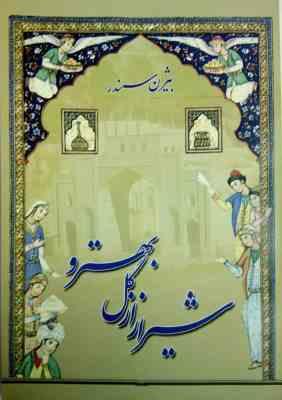 بیژن سمندر
شیراز از گل بهترو